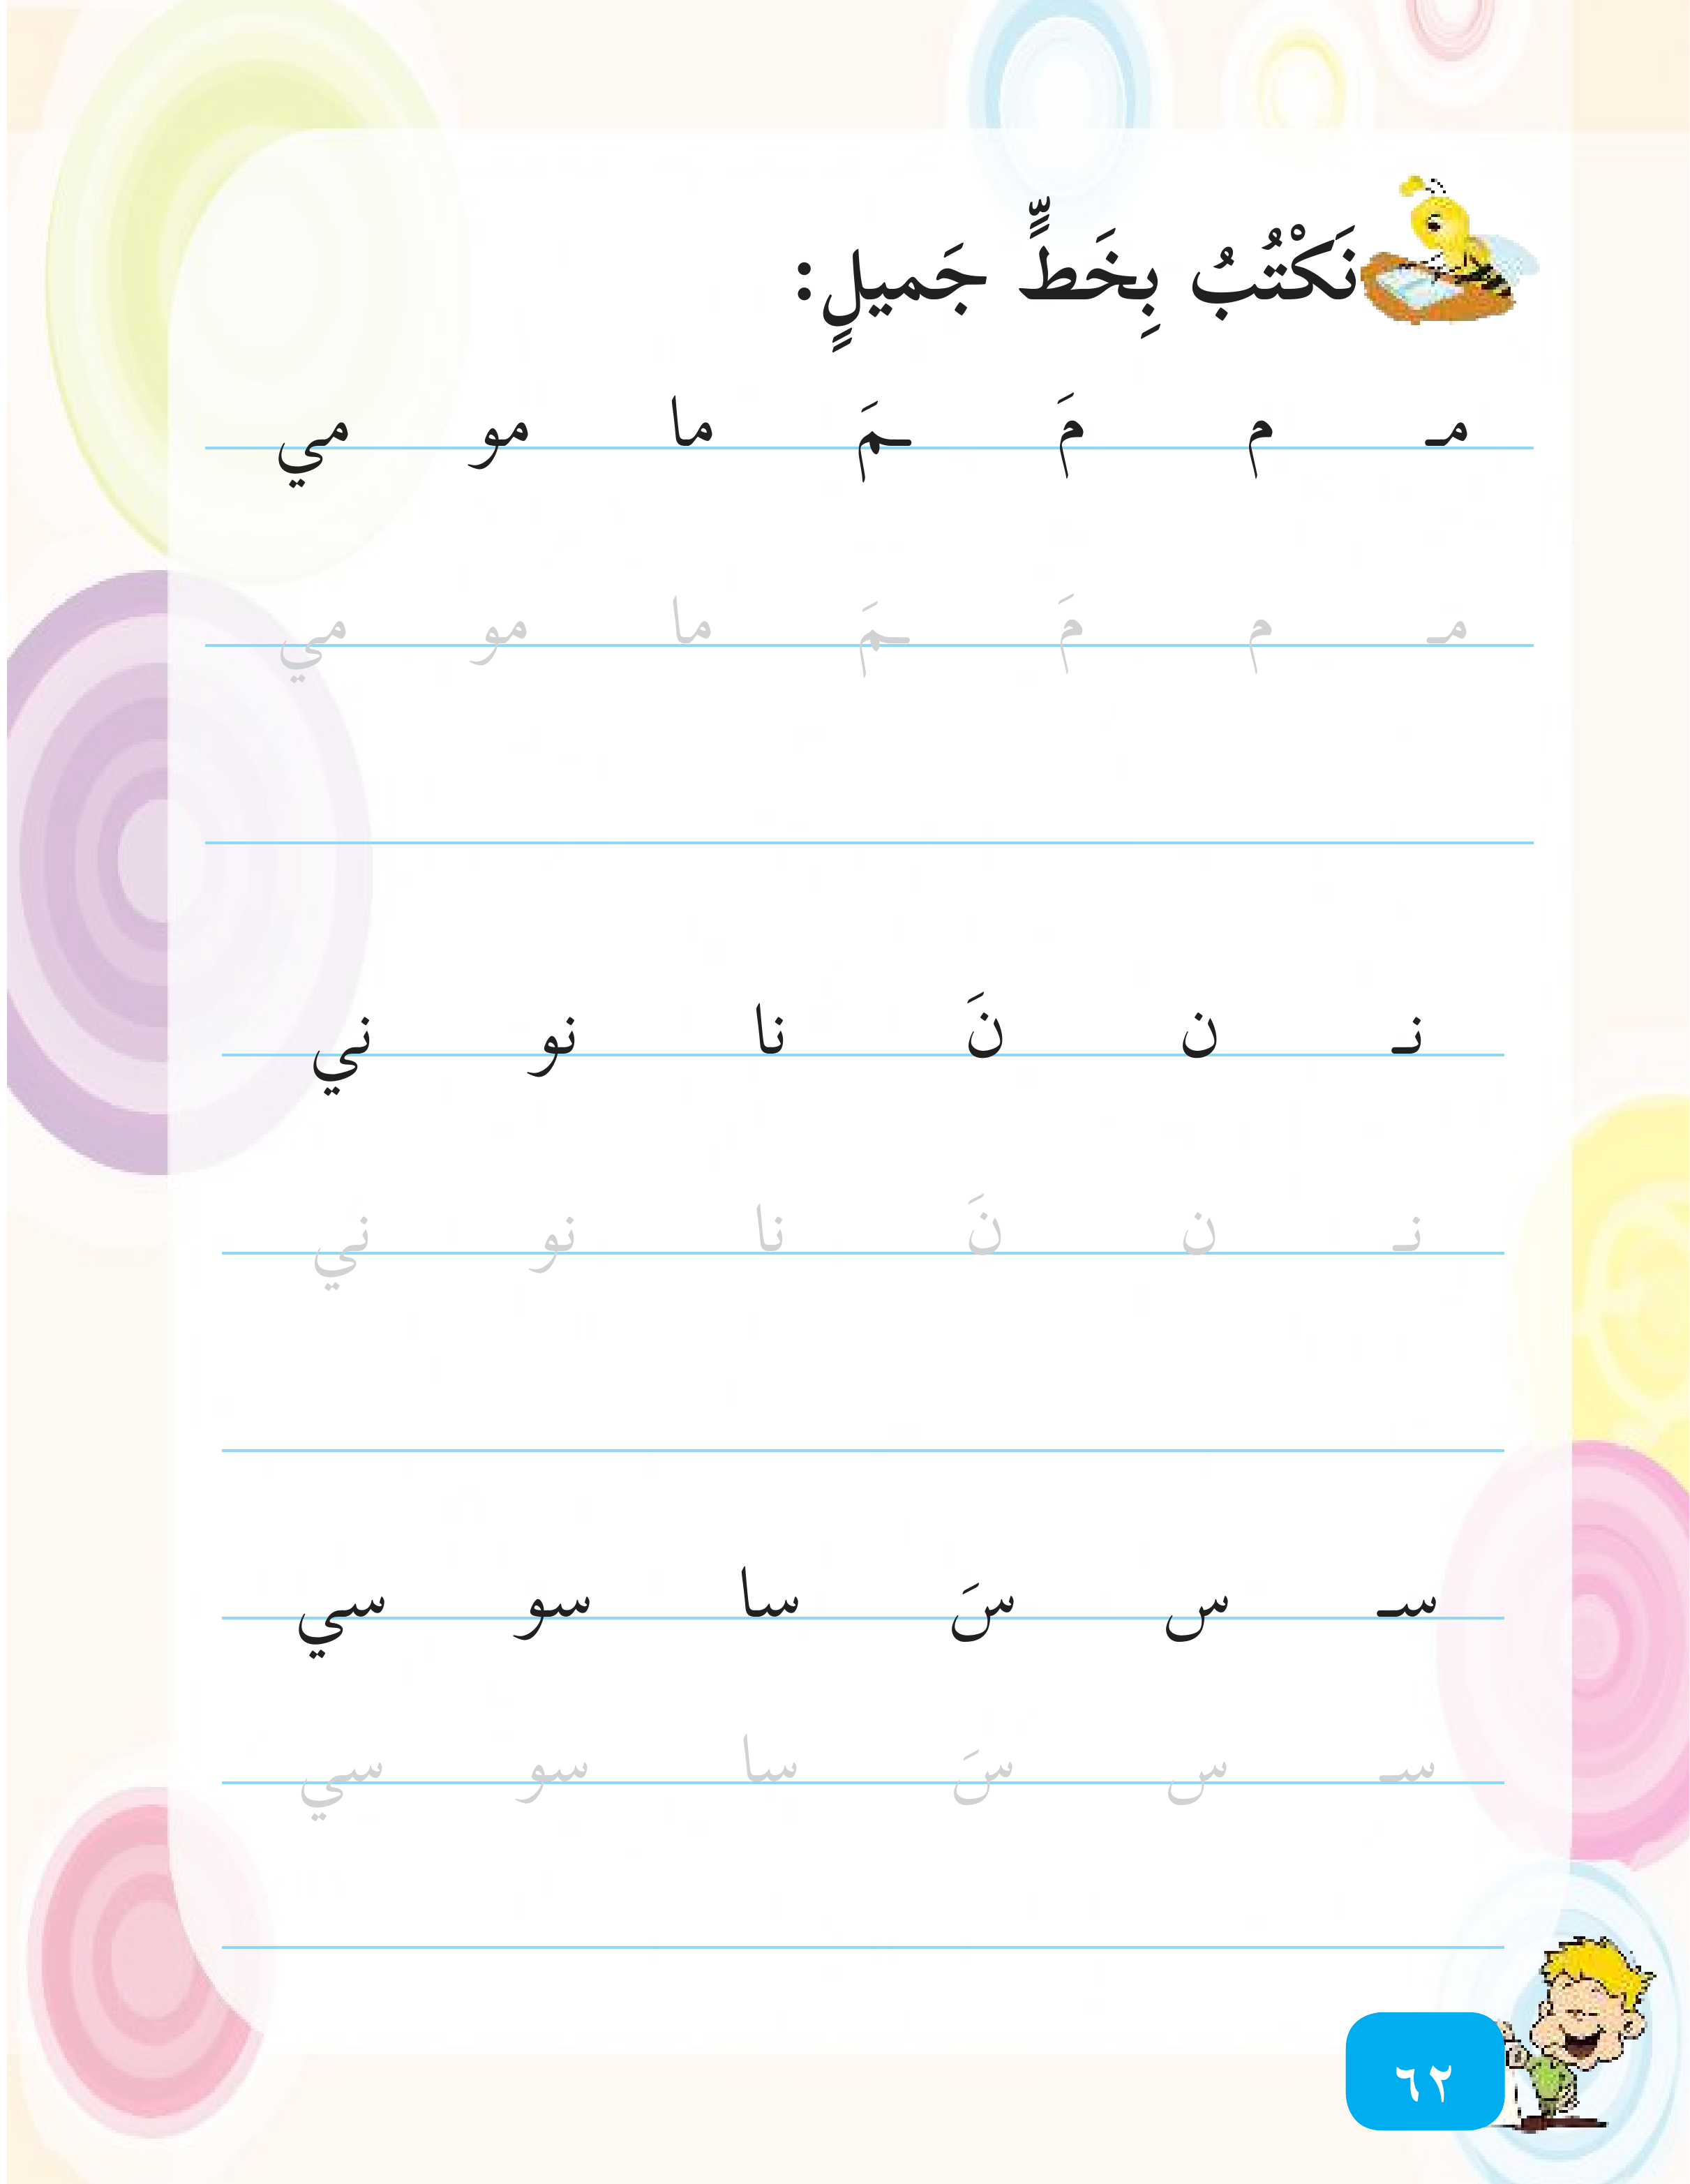 نَكْتُبُ بِخَطٍّ جَميلٍ:
مـ م مَ ـمَ ما مو مي
مـ م مَ ـمَ ما مو مي
نـ ن نَ نا نو ني
نـ ن نَ نا نو ني
سـ س سَ سا سو سي
سـ س سَ سا سو سي
٦٢